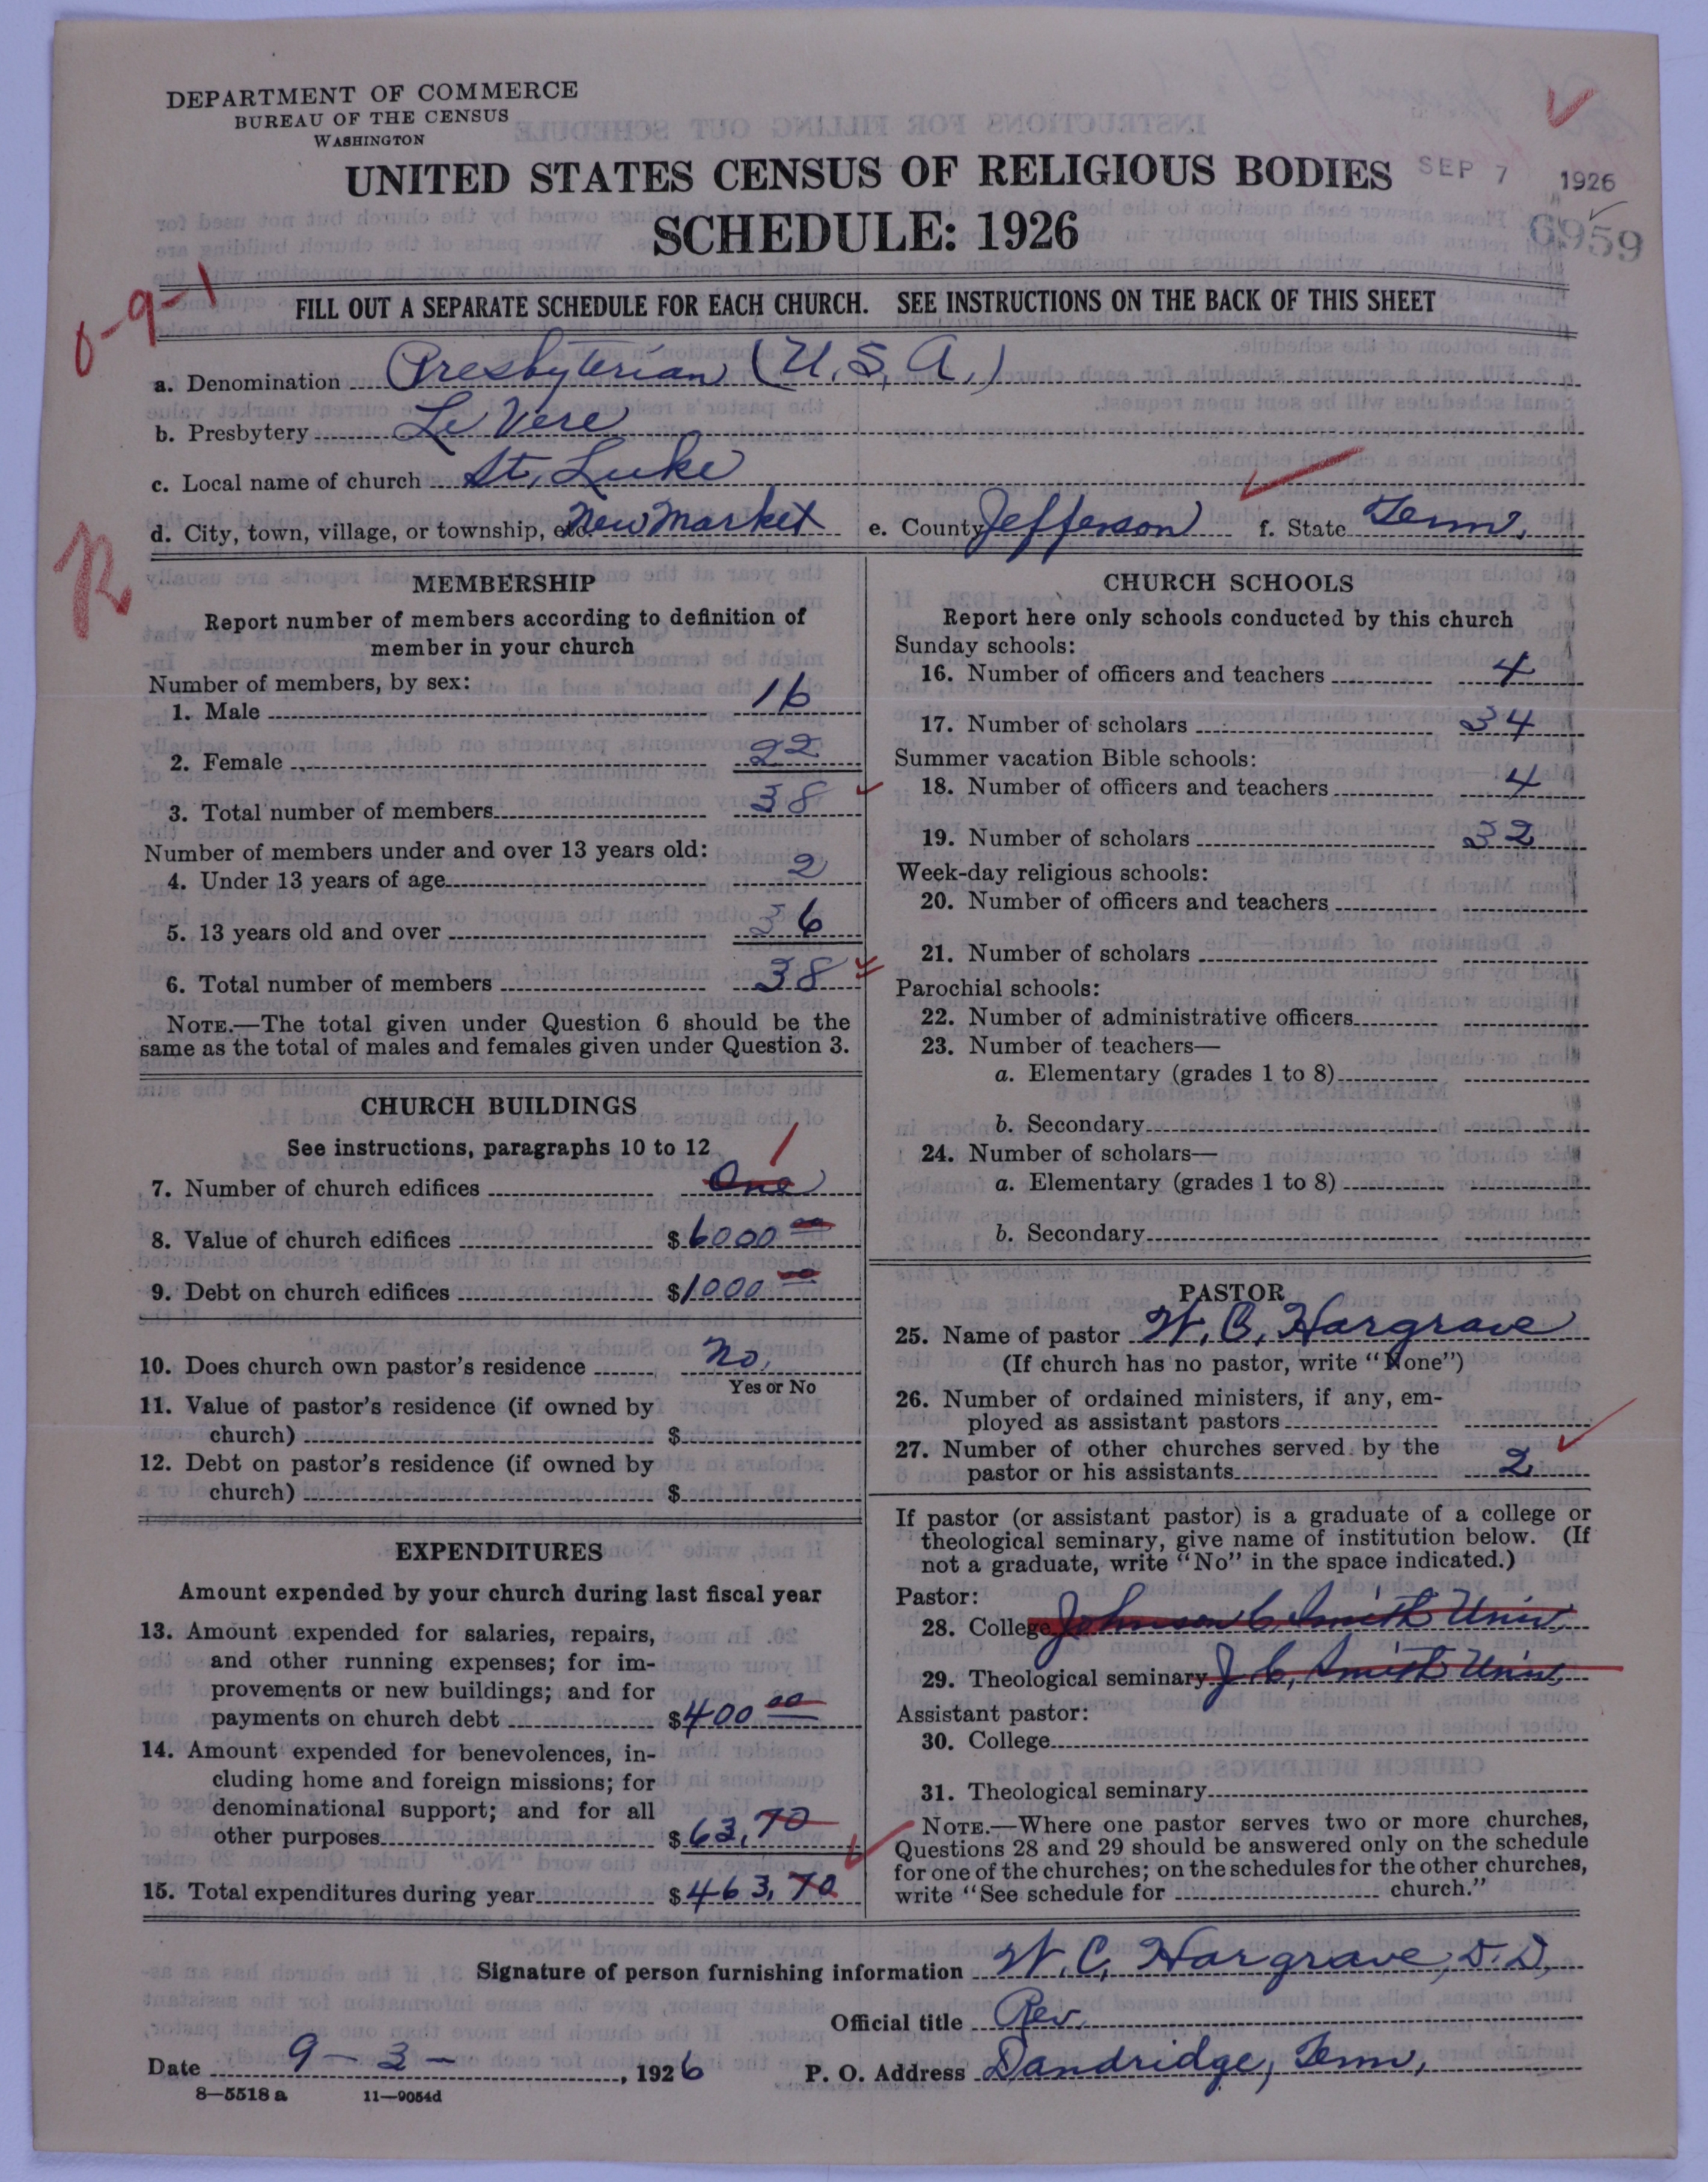 DEPARTMENT OF COMMERCE
BUREAU OF THE CENSUS
WASHINGTON
UNITED STATES CENSUS OF RELIGIOUS BODIES
SEP 7 1926
SCHEDULE: 1926
6959
6-9-1
FILL OUT A SEPARATE SCHEDULE FOR EACH CHURCH. SEE INSTRUCTIONS ON THE BACK OF THIS SHEET
a. Denomination Presbyterian (U.S.A.)
b. Presbytery Le Vere
c. Local name of church St. Luke
d. City, town, village, or township, etc. New Market e. County Jefferson f. State Tenn.
MEMBERSHIP
Report number of members according to definition of
member in your church
Number of members, by sex:
1. Male 16
2. Female 22
3. Total number of members 38
Number of members under and over 13 years old:
4. Under 13 years of age 2
5. 13 years old and over 36
6. Total number of members 38
NOTE.—The total given under Question 6 should be the
same as the total of males and females given under Question 3.
CHURCH BUILDINGS
See instructions, paragraphs 10 to 12
1
7. Number of church edifices One
8. Value of church edifices $6000 00
9. Debt on church edifices $1000 00
10. Does church own pastor's residence No.
Yes or No
11. Value of pastor's residence (if owned by
church) $
12. Debt on pastor's residence (if owned by
church) $
EXPENDITURES
Amount expended by your church during last fiscal year
13. Amount expended for salaries, repairs,
and other running expenses; for im-
provements or new buildings; and for
payments on church debt $400 00
14. Amount expended for benevolences, in-
cluding home and foreign missions; for
denominational support; and for all
other purposes $63.70
15. Total expenditures during year $463.70
CHURCH SCHOOLS
Report here only schools conducted by this church
Sunday schools:
16. Number of officers and teachers 4
17. Number of scholars 34
Summer vacation Bible schools:
18. Number of officers and teachers 4
19. Number of scholars 32
Week-day religious schools:
20. Number of officers and teachers
21. Number of scholars
Parochial schools:
22. Number of administrative officers
23. Number of teachers—
a. Elementary (grades 1 to 8)
b. Secondary
24. Number of scholars—
a. Elementary (grades 1 to 8)
b. Secondary
PASTOR
25. Name of pastor W. C. Hargrave
(If church has no pastor, write "None")
26. Number of ordained ministers, if any, em-
ployed as assistant pastors
27. Number of other churches served by the
pastor or his assistants 2
If pastor (or assistant pastor) is a graduate of a college or
theological seminary, give name of institution below. (If
not a graduate, write "No" in the space indicated.)
Pastor:
28. College Johnson C. Smith Univ.
29. Theological seminary J. C. Smith Univ.
Assistant pastor:
30. College
31. Theological seminary
NOTE.—Where one pastor serves two or more churches,
Questions 28 and 29 should be answered only on the schedule
for one of the churches; on the schedules for the other churches,
write "See schedule for church."
Signature of person furnishing information W. C. Hargrave, D.D.
Official title Rev.
Date 9-3-, 1926 P. O. Address Dandridge, Tenn.
8-5518 a 11-9054d